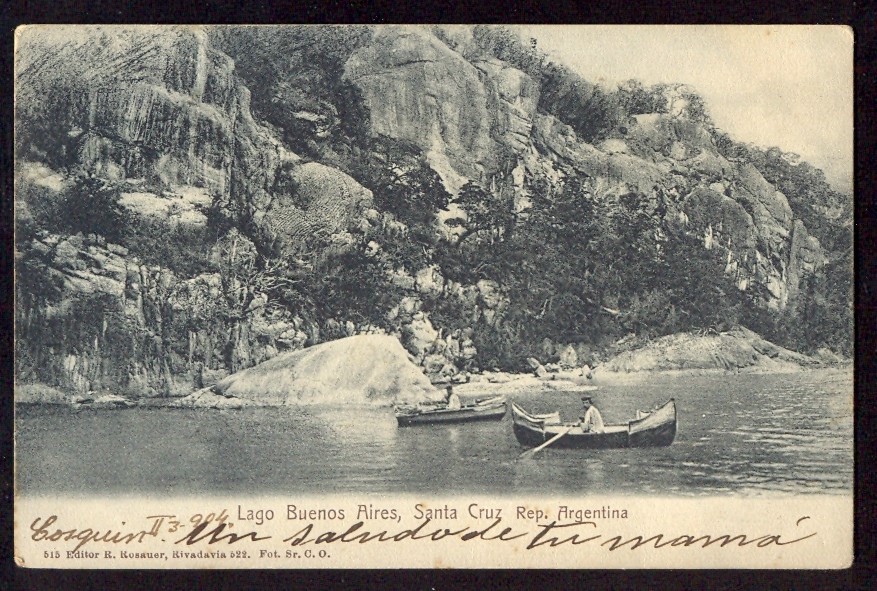 Lago Buenos Aires, Santa Cruz Rep. Argentina
Cosquin II 3-904. Un saludo de tu mamá
515 Editor R. Rosauer, Rivadavia 522. Fot. Sr. C. O.